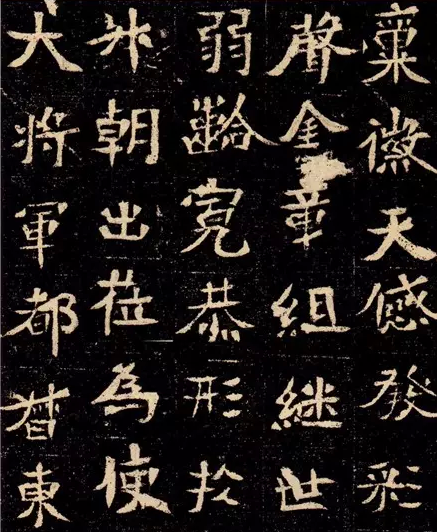 稟徽天感發彩
聲金章組継世
弱齡寬恭形扵
升朝出莅為使
大將軍都督東